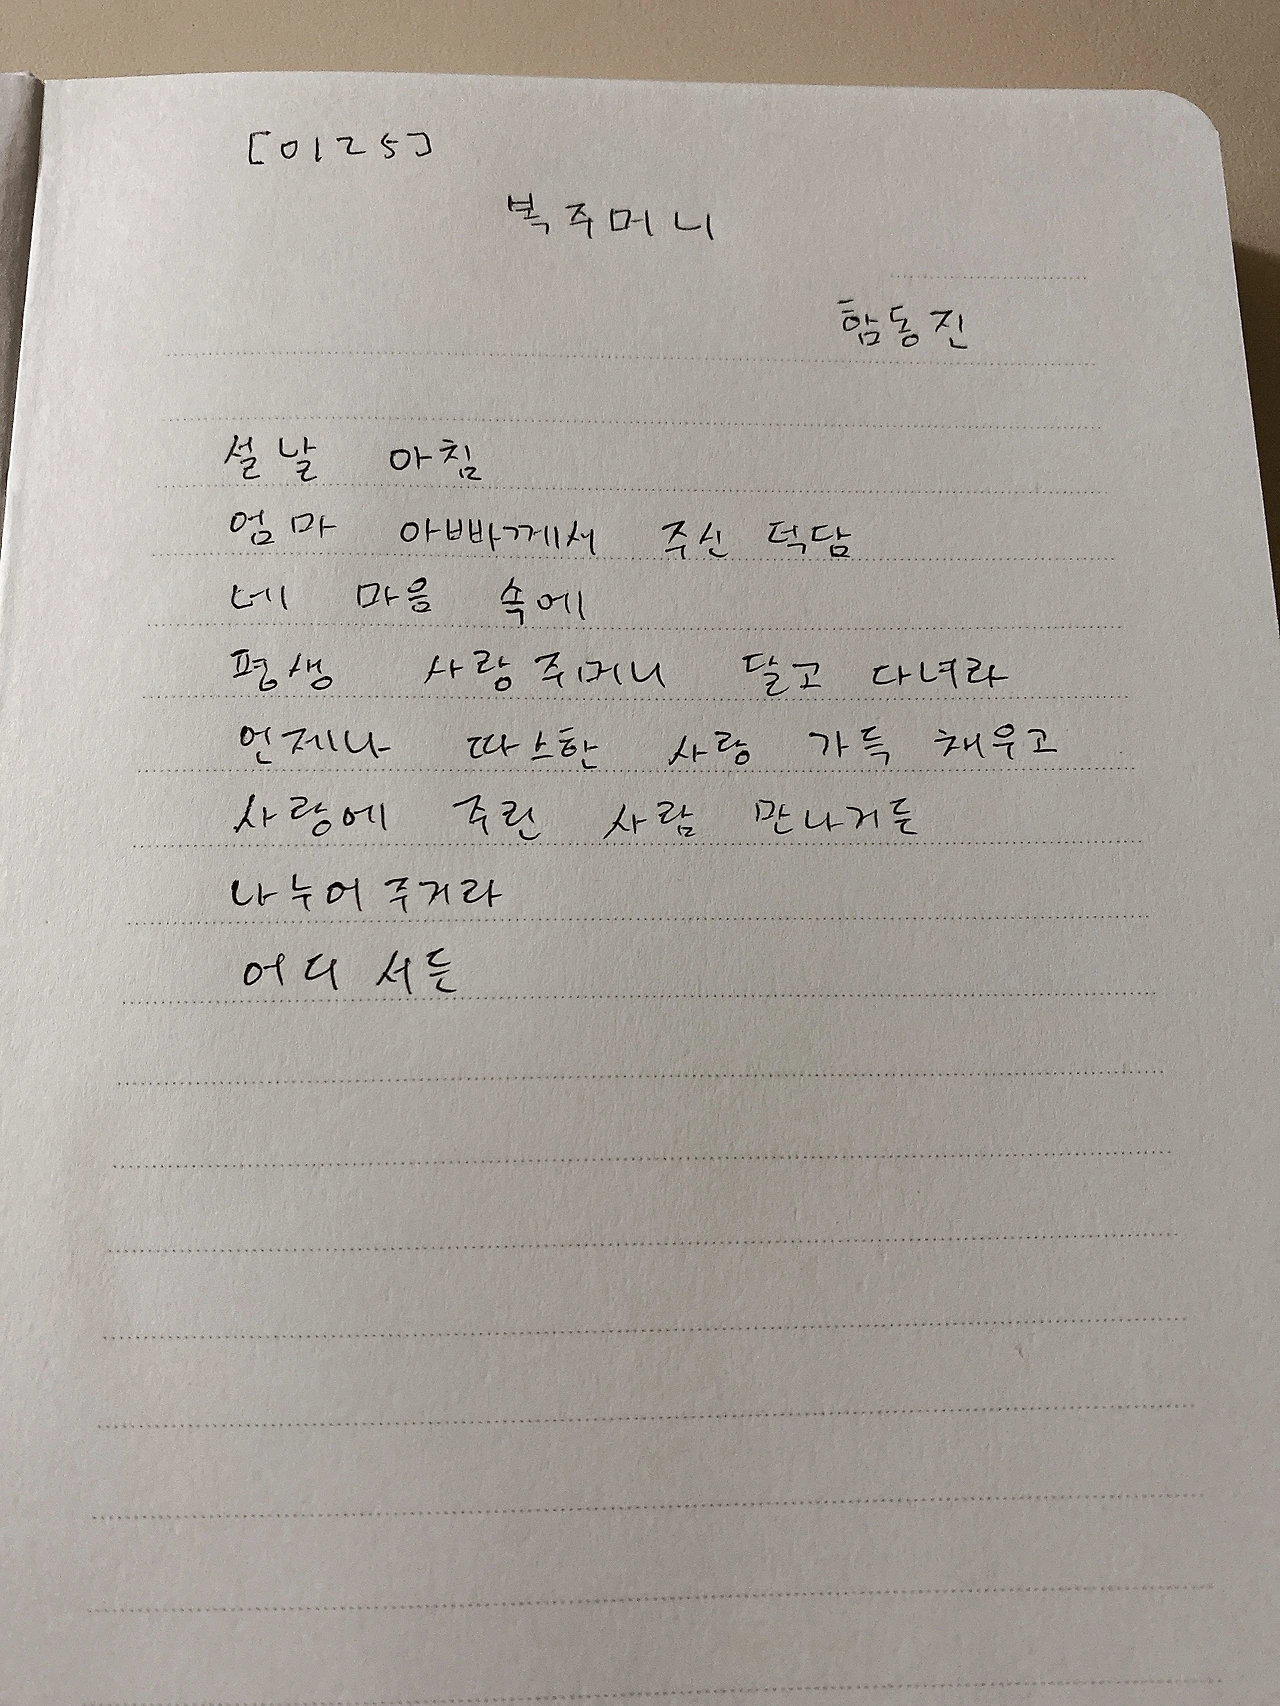 [0125]
복주머니
함동진
설날 아침
엄마 아빠께서 주신 덕담
네 마음 속에
평생 사랑주머니 달고 다녀라
언제나 따스한 사랑 가득 채우고
사랑에 주린 사람 만나거든
나누어 주거라
어디서든